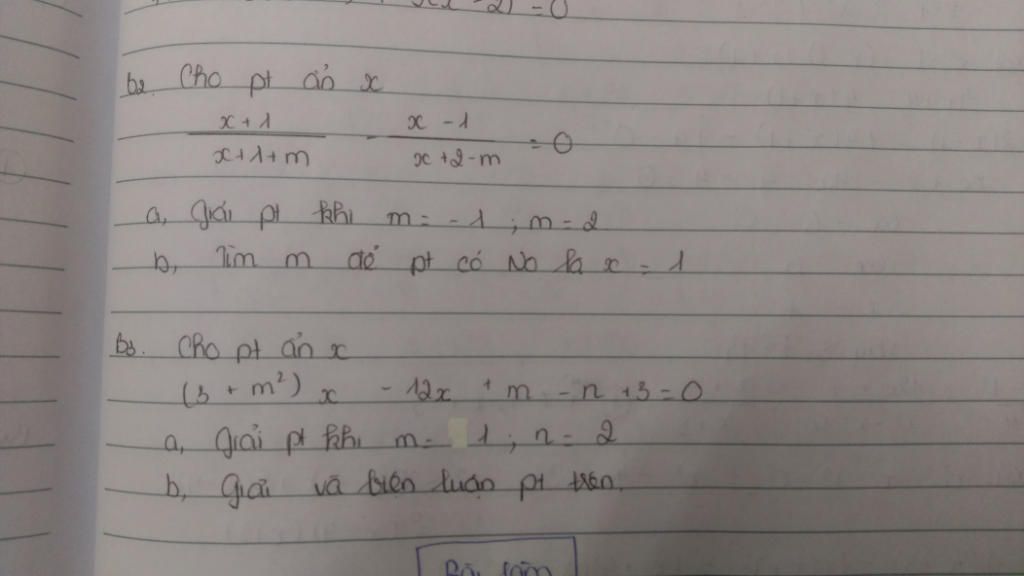 x(x - 2) = 0
b2. Cho pt ẩn x
x + 1 / x + 1 + m - x - 1 / x + 2 - m = 0
a, Giải pt khi m = - 1 ; m = 2
b, Tìm m để pt có No là x = 1
b3. Cho pt ẩn x
(3 + m²) x - 12x + m - n + 3 = 0
a, Giải pt khi m = 1 ; n = 2
b, Giải và biện luận pt trên.
Bài làm